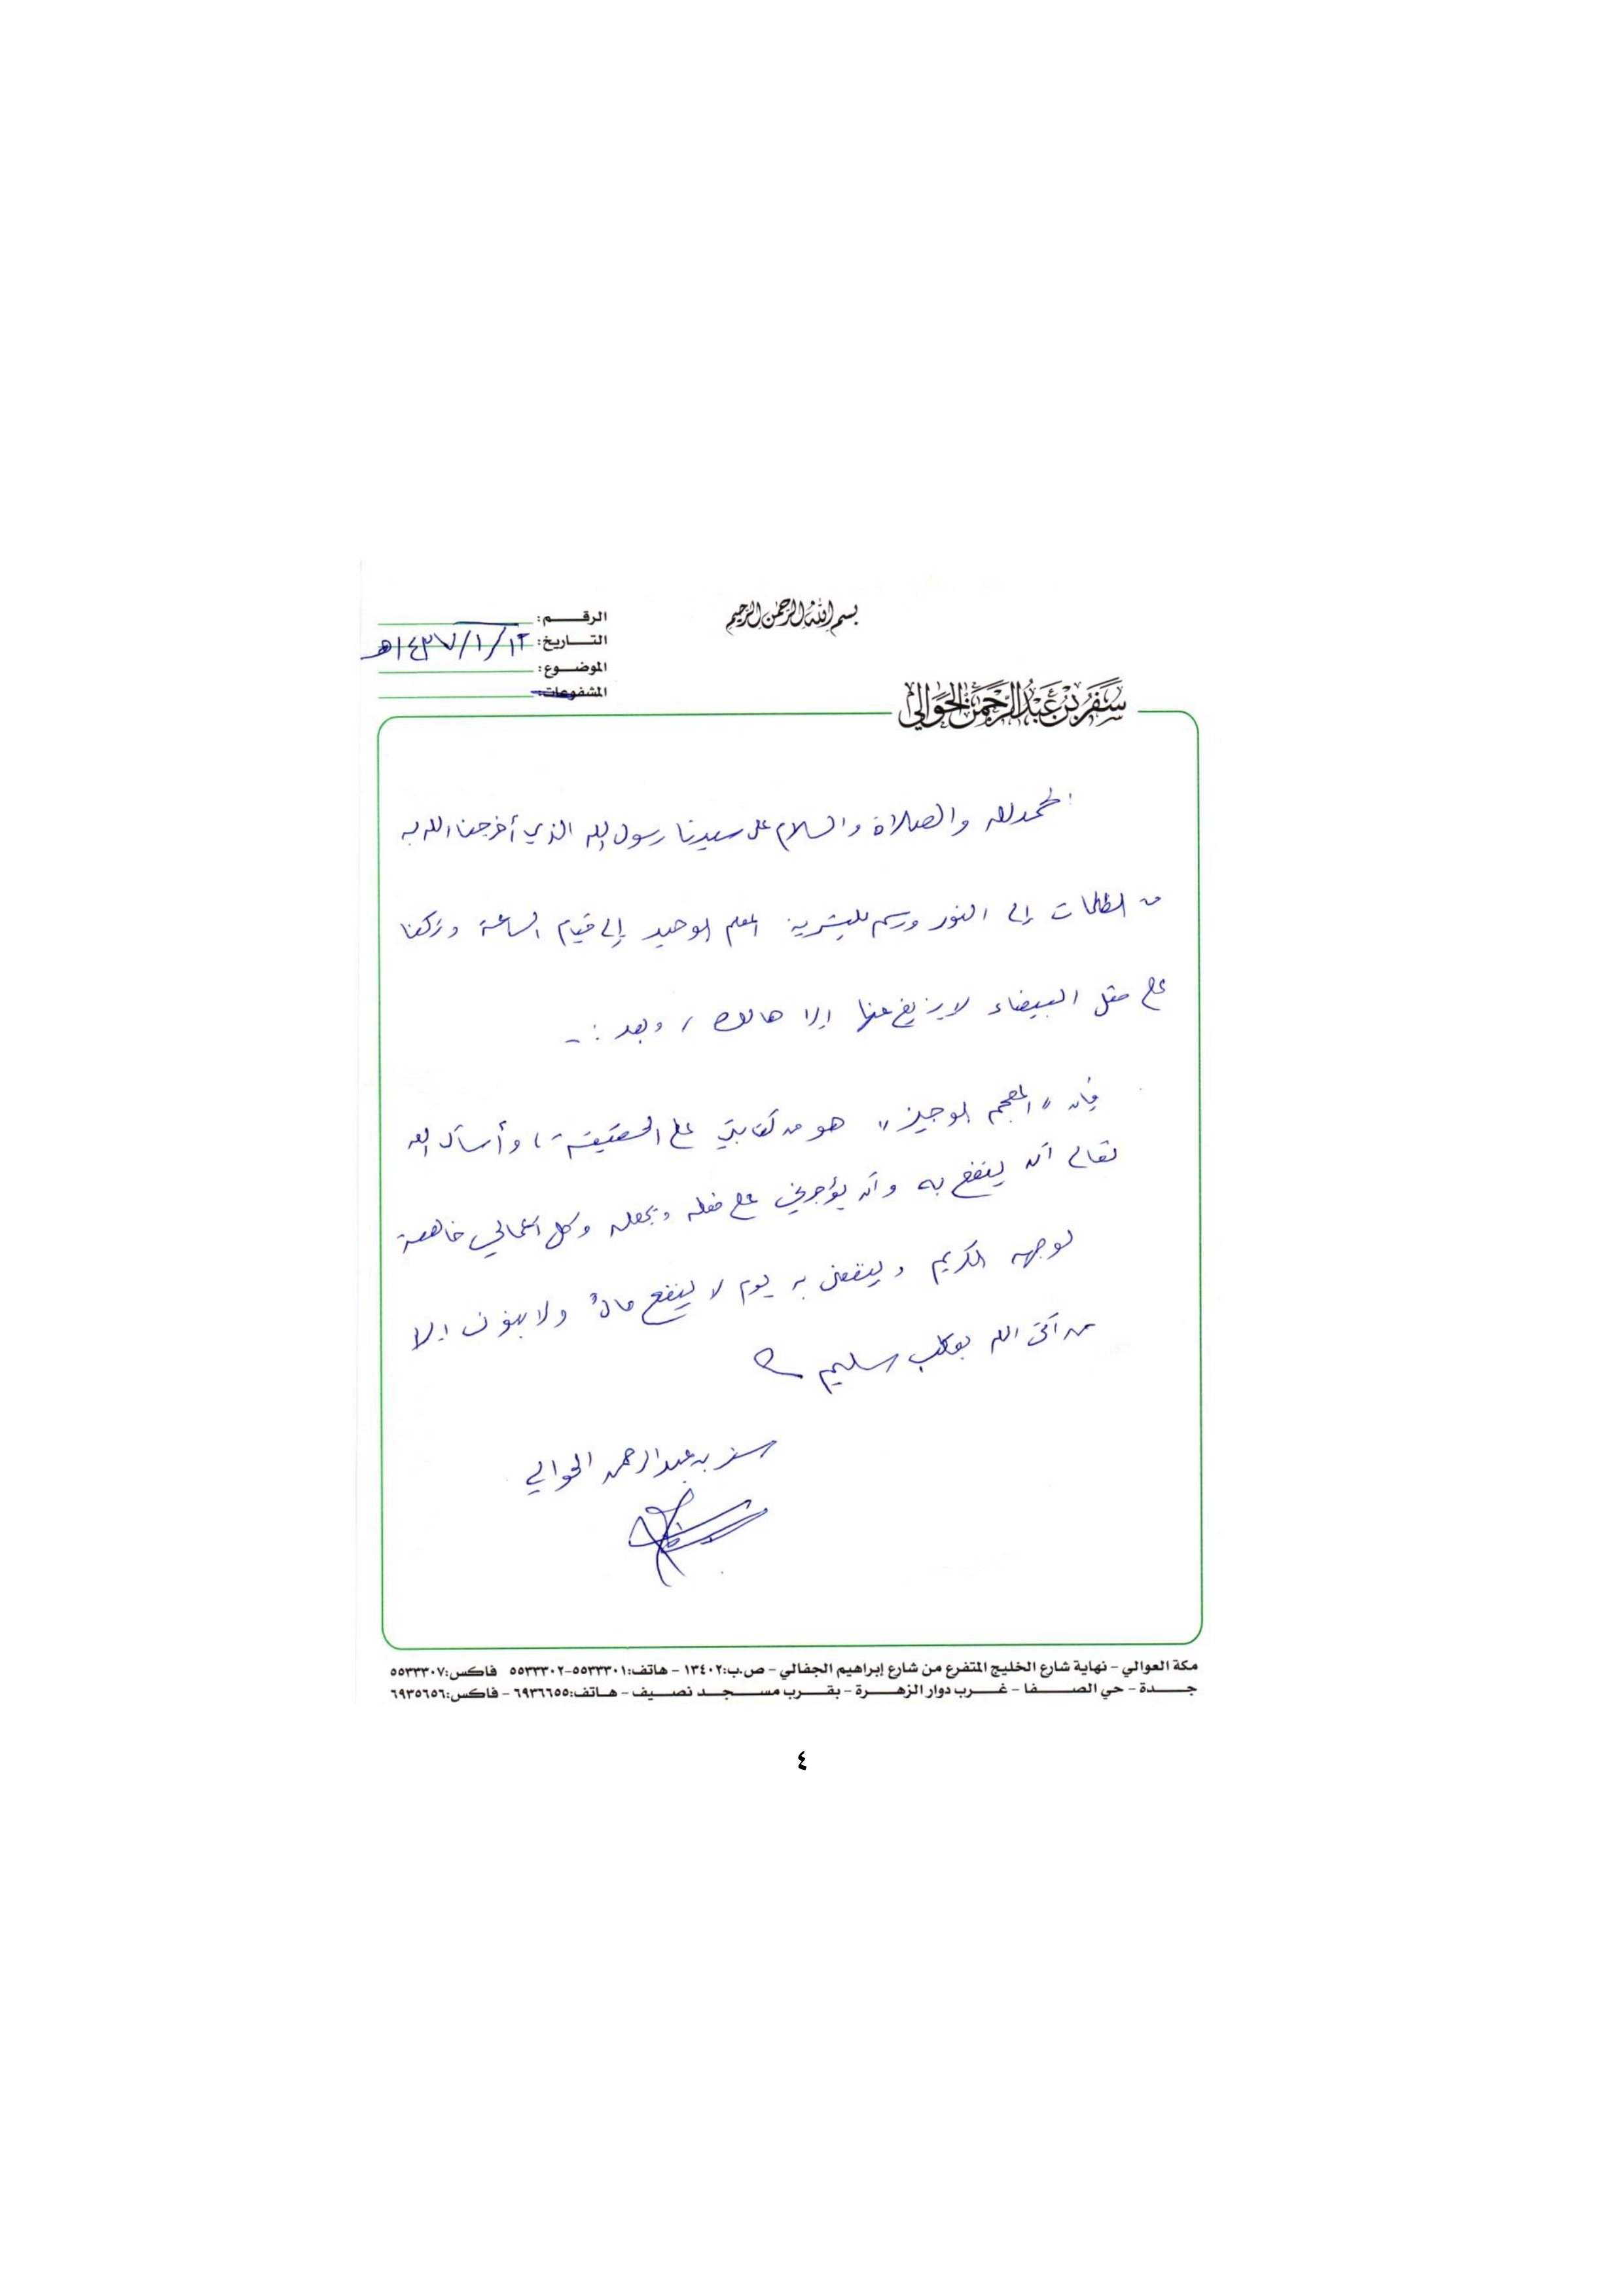 بسم الله الرحمن الرحيم
الرقم:
التاريخ: ١٢/١/١٤٣٧هـ
الموضوع:
المشفوعات:
سفر بن عبد الرحمن الحوالي
الحمد لله والصلاة والسلام على سيدنا رسول الله الذي أخرجنا الله به
من الظلمات إلى النور ورسم للبشرية المعلم الوحيد إلى قيام الساعة وتركنا
على مثل البيضاء لا يزيغ عنها إلا هالك، وبعد :-
فإن "المعجم الوجيز" هو من كتابتي على الحقيقة، وأسأل الله
تعالى أن ينفع به وأن يؤجرني على فعله ويجعله وكل أعمالي خالصة
لوجهه الكريم وينفعني به يوم لا ينفع مالٌ ولا بنون إلا
من أتى الله بقلب سليم
سفر بن عبد الرحمن الحوالي
مكة العوالي - نهاية شارع الخليج المتفرع من شارع إبراهيم الجفالي - ص.ب:١٣٤٠٢ - هاتف:٥٥٣٣٣٠١-٥٥٣٣٣٠٢ فاكس:٥٥٣٣٣٠٧
جدة - حي الصفا - غرب دوار الزهرة - بقرب مسجد نصيف - هاتف:٦٩٣٦٦٥٥ - فاكس:٦٩٣٥٦٥٦
٤